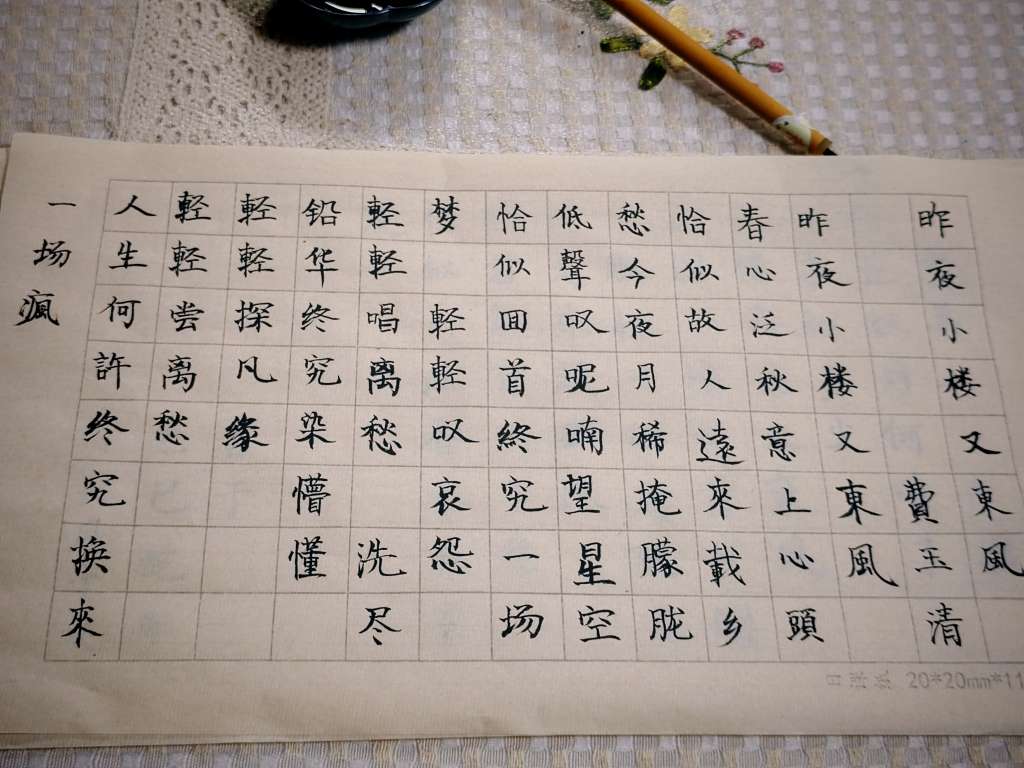 昨夜小楼又東風
費玉清
昨夜小楼又東風
春心泛秋意上心頭
恰似故人遠來載乡
愁今夜月稀掩朦胧
低聲叹呢喃望星空
恰似回首終究一场
梦 輕輕叹哀怨
輕唱离愁 洗尽
铅华终究染懵懂
輕輕探凡缘
輕輕尝离愁
人生何許终究换來
一场疯
20*20mm*11